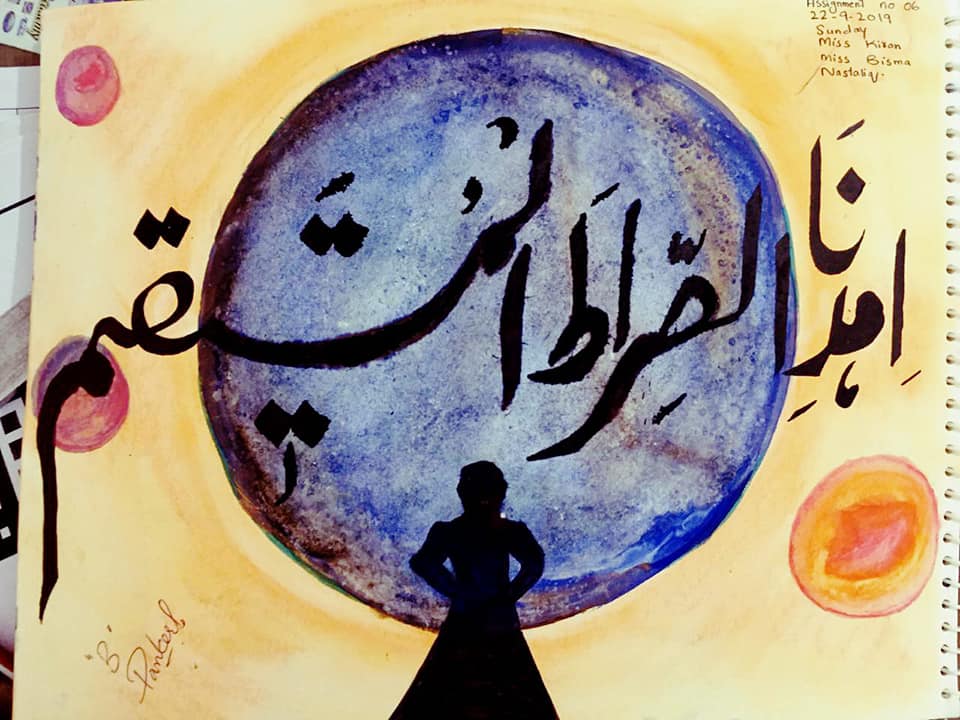 Assignment no 06
22-9-2019
Sunday
Miss Kiran
Miss Bisma
Nastaliq.
اِهْدِنَا الصِّرَاطَ الْمُسْتَقِيم
"B"